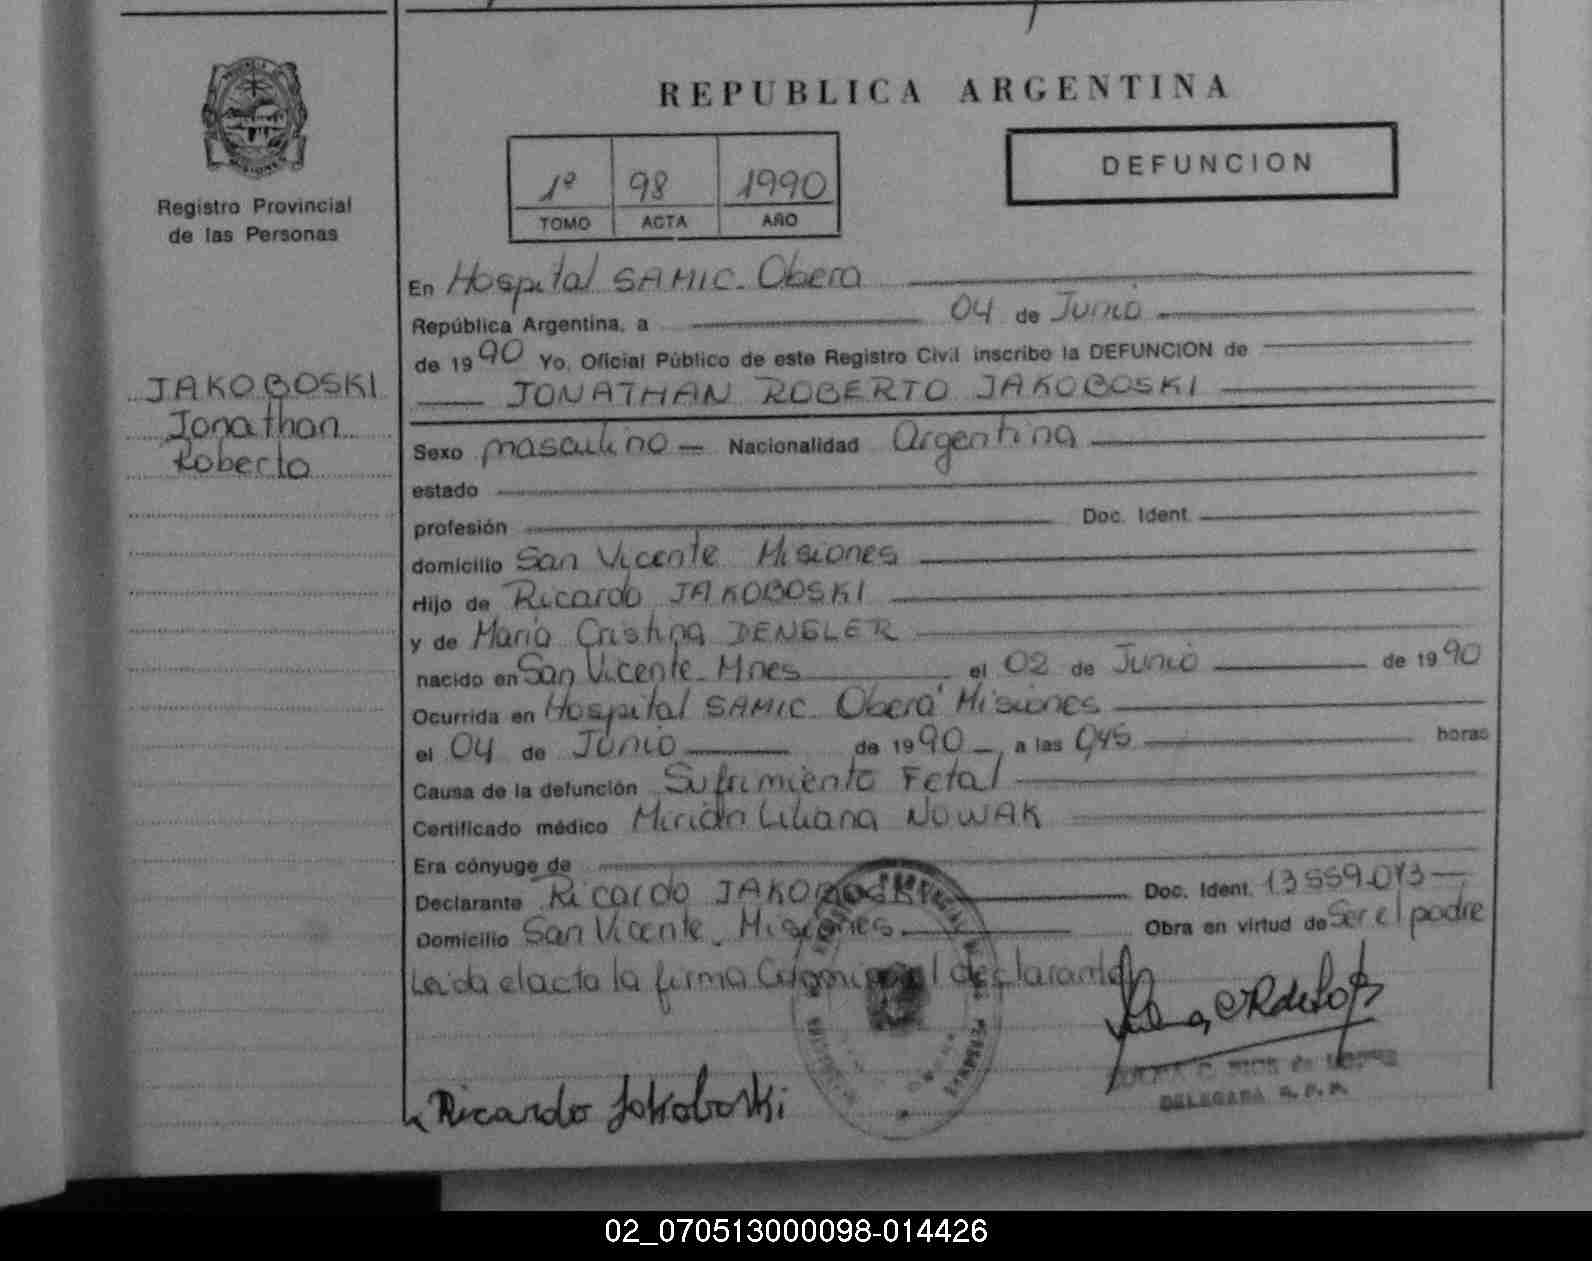 REPUBLICA ARGENTINA
DEFUNCION
1º 98 1990
TOMO ACTA AÑO
Registro Provincial
de las Personas
JAKOBOSKI
Jonathan
Roberto
En Hospital SAMIC. Obera
República Argentina, a 04 de Junio
de 1990 Yo, Oficial Público de este Registro Civil inscribo la DEFUNCION de
JONATHAN ROBERTO JAKOBOSKI
Sexo masculino Nacionalidad Argentina
estado
profesión Doc. Ident.
domicilio San Vicente Misiones
Hijo de Ricardo JAKOBOSKI
y de Maria Cristina DENGLER
nacido en San Vicente Mnes el 02 de Junio de 1990
Ocurrida en Hospital SAMIC Oberá Misiones
el 04 de Junio de 1990, a las 0,45 horas
Causa de la defunción Sufrimiento Fetal
Certificado médico Mirian Liliana NOWAK
Era cónyuge de
Declarante Ricardo JAKOBOSKI Doc. Ident. 13559.073
Domicilio San Vicente. Misiones Obra en virtud de Ser el padre
Leida el acta la firma Conmigo el declarante
Ricardo Jakoboski
DELEGADA R. P. P.
02_070513000098-014426